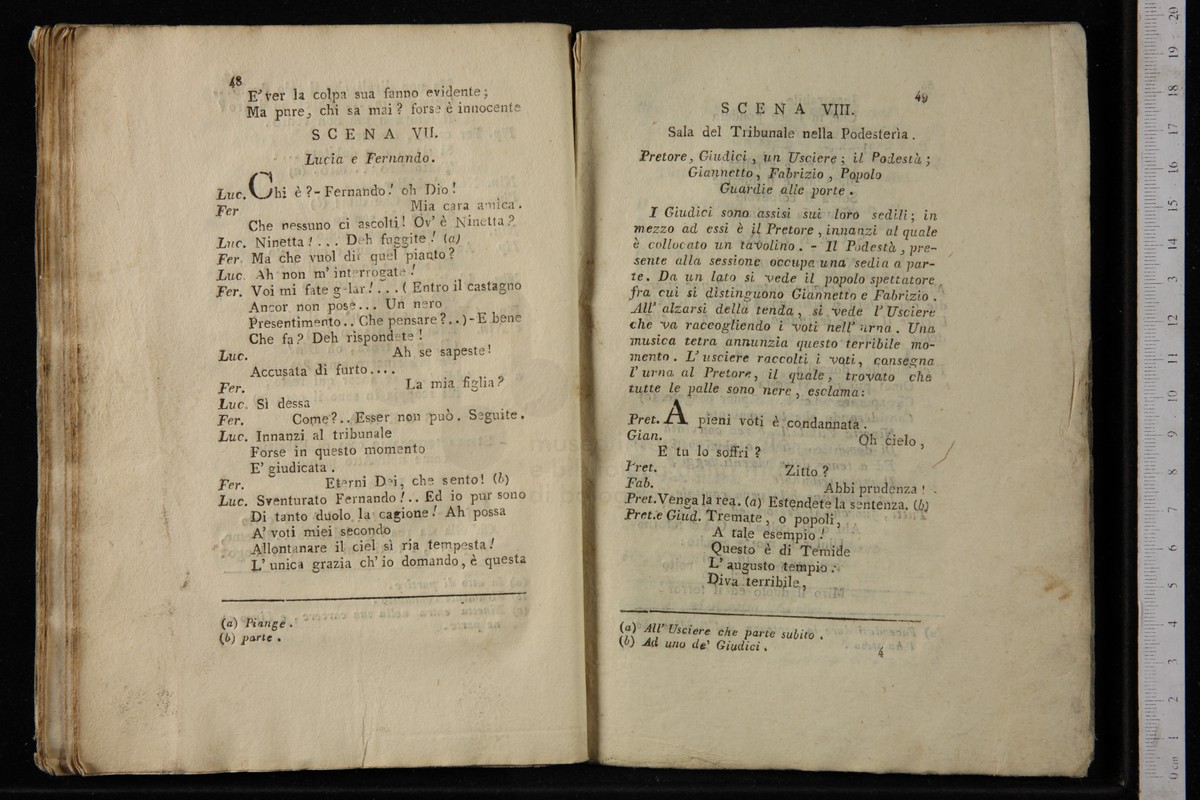 48
E' ver la colpa sua fanno evidente;
Ma pure, chi sa mai? forse è innocente
SCENA VII.
Lucia e Fernando.
Luc. Chi è?- Fernando! oh Dio!
Fer Mia cara amica.
Che nessuno ci ascolti! Ov' è Ninetta?
Luc. Ninetta!... Deh fuggite! (a)
Fer. Ma che vuol dir quel pianto?
Luc. Ah non m' interrogate!
Fer. Voi mi fate gelar!... ( Entro il castagno
Ancor non pose... Un nero
Presentimento.. Che pensare?..)-E bene
Che fa? Deh rispondete!
Luc. Ah se sapeste!
Accusata di furto....
Fer. La mia figlia?
Luc. Sì dessa
Fer. Come?.. Esser non può. Seguite.
Luc. Innanzi al tribunale
Forse in questo momento
E' giudicata.
Fer. Eterni Dei, che sento! (b)
Luc. Sventurato Fernando!.. Ed io pur sono
Di tanto duolo la cagione! Ah possa
A' voti miei secondo
Allontanare il ciel sì ria tempesta!
L' unica grazia ch' io domando, è questa
(a) Piange.
(b) parte.
49
SCENA VIII.
Sala del Tribunale nella Podesteria.
Pretore, Giudici, un Usciere; il Podestà;
Giannetto, Fabrizio, Popolo
Guardie alle porte.
I Giudici sono assisi sui loro sedili; in
mezzo ad essi è il Pretore, innanzi al quale
è collocato un tavolino. - Il Podestà, pre-
sente alla sessione occupa una sedia a par-
te. Da un lato si vede il popolo spettatore
fra cui si distinguono Giannetto e Fabrizio.
All' alzarsi della tenda, si vede l' Usciere
che va raccogliendo i voti nell' urna. Una
musica tetra annunzia questo terribile mo-
mento. L' usciere raccolti i voti, consegna
l' urna al Pretore, il quale, trovato che
tutte le palle sono nere, esclama:
Pret. A pieni voti è condannata.
Gian. Oh cielo,
E tu lo soffri?
Pret. Zitto?
Fab. Abbi prudenza!
Pret. Venga la rea. (a) Estendete la sentenza. (b)
Pret. e Giud. Tremate, o popoli,
A tale esempio!
Questo è di Temide
L' augusto tempio:
Diva terribile,
(a) All' Usciere che parte subito.
(b) Ad uno de' Giudici.
4
0 cm 1 2 3 4 5 6 7 8 9 10 11 12 13 14 15 16 17 18 19 20